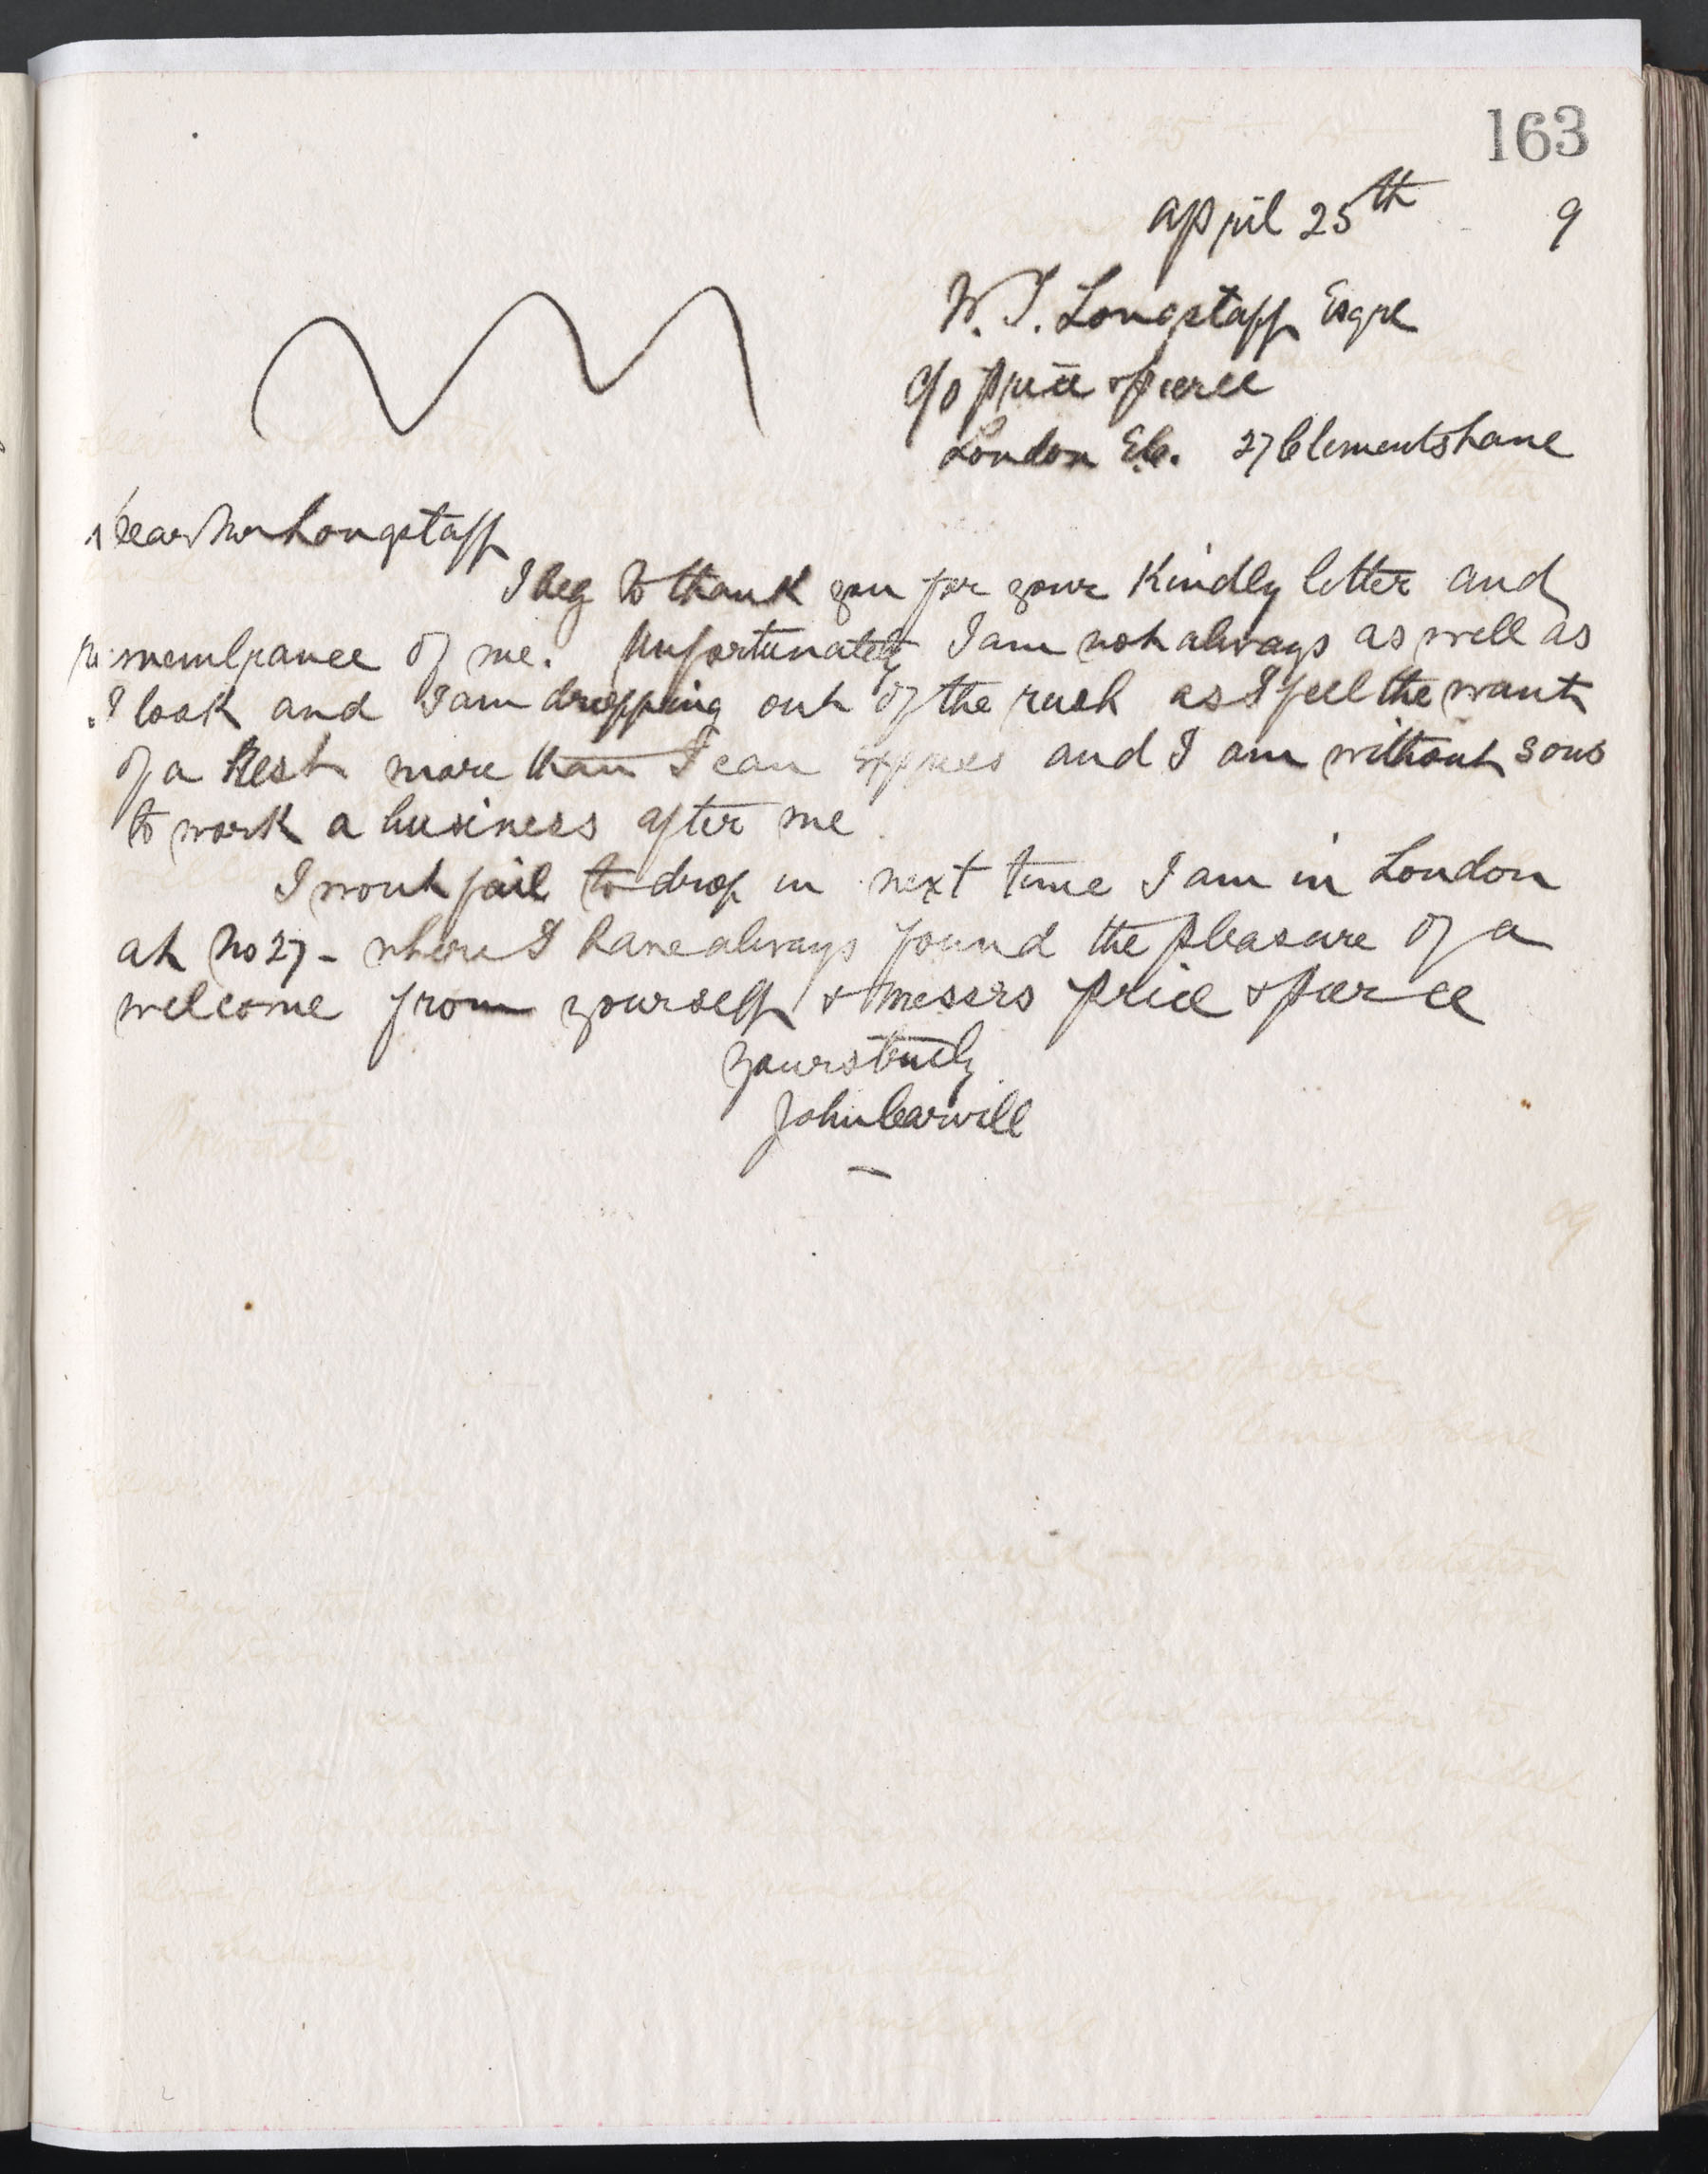 163
April 25th 9
W. J. Longstaff Esqre
c/o Price & Pierce
London E.C. 27 Clements Lane
Dear Mr Longstaff
I beg to thank you for your kindly letter and
remembrance of me. Unfortunately I am not always as well as
I look and I am dropping out of the rush as I feel the want
of a Rest more than I can express and I am without sons
to work a business after me.
I wont fail to drop in next time I am in London
at No 27 - where I have always found the pleasure of a
welcome from yourself & Messrs Price & Pierce
Yours truly
John Carvill